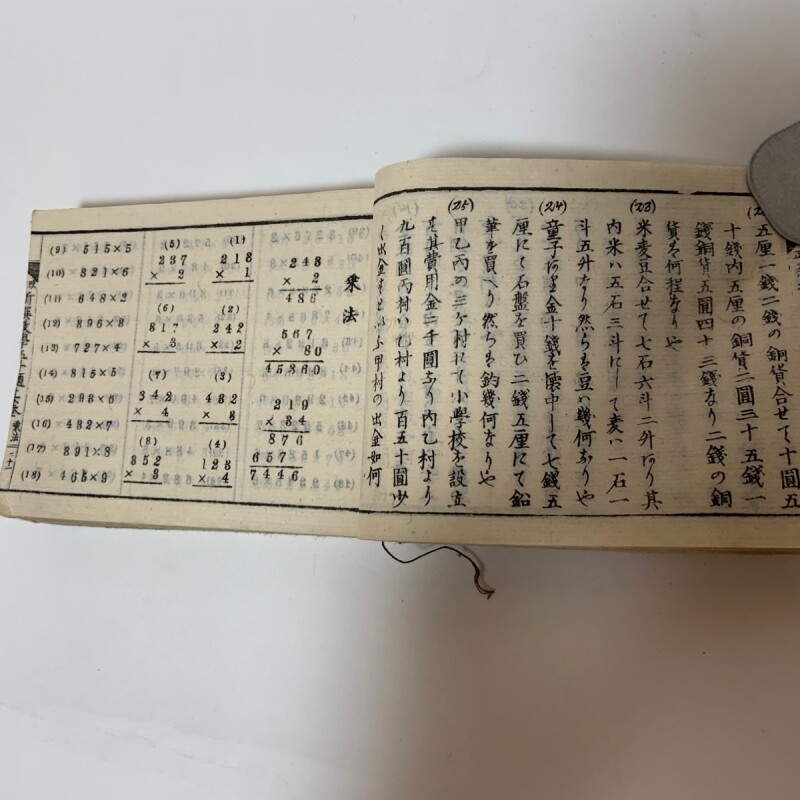 五厘一錢二錢の銅貨合せて十圓五
十錢内五厘の銅貨二圓三十五錢一
錢銅貨五圓四十三錢なり二錢の銅
貨は何程なりや
(23) 米麦豆合せて七石六斗二升あり其
内米ハ五石三斗にして麦ハ一石一
斗五升なり然らば豆ハ幾何なりや
(24) 童子あり金十錢を懐中して七錢五
厘にて石盤を買ひ二錢五厘にて鉛
筆を買へり然らば釣幾何なりや
(25) 甲乙丙の三ケ村にて小學校を設立
す其費用金二千圓なり内乙村より
九百圓丙村ハ乙村より百五十圓少
し出金すと云ふ甲村の出金如何
乘法
243
× 2
486
567
× 80
45360
219
× 34
876
657
7446
(1)
218
× 1
(2)
242
× 2
(3)
432
× 3
(4)
123
× 4
(5)
237
× 2
(6)
817
× 3
(7)
342
× 4
(8)
352
× 3
(9) 515×5
(10) 821×6
(11) 648×2
(12) 396×8
(13) 727×4
(14) 815×5
(15) 298×6
(16) 432×7
(17) 891×8
(18) 465×9
乘法